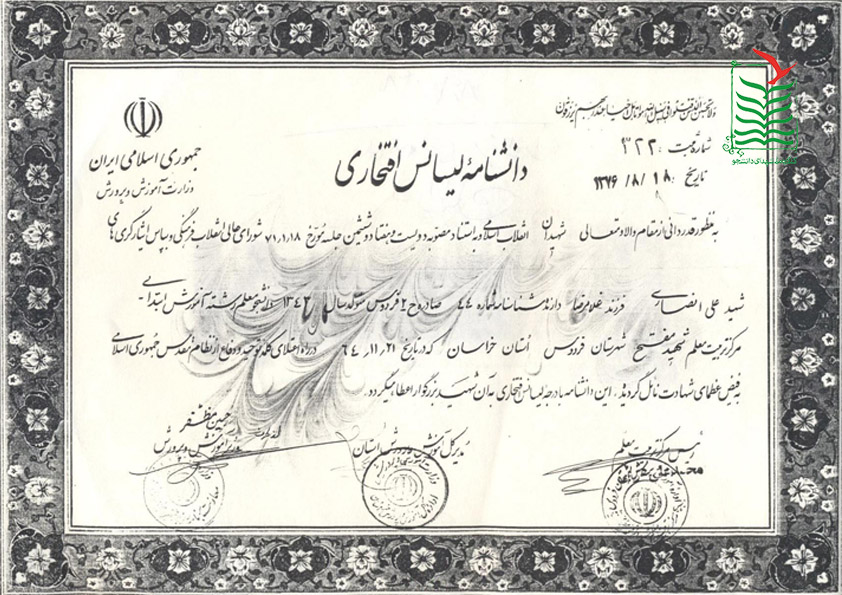 ولا تحسبن الذین قتلوا فی سبیل الله امواتا بل احیاء عند ربهم یرزقون
شماره ثبت : ۳۲۲
تاریخ : ۱۳۷۶/۸/۱۸
جمهوری اسلامی ایران
وزارت آموزش و پرورش
دانشنامهٔ لیسانس افتخاری
به منظور قدردانی از مقام والا و متعالی شهیدان انقلاب اسلامی و به استناد مصوبه دویست و هفتاد و ششمین جلسه مورخ ۷۱,۱,۱۸ شورای عالی انقلاب فرهنگی و بپاس ایثارگری های
شهید علی انصاری فرزند غلامرضا دارنده شناسنامه شماره ۴۴ صادره ح ۲ فردوس متولد سال ۱۳۴۳ دانشجو معلم رشته آموزش ابتدایی
مرکز تربیت معلم شهید مفتح شهرستان فردوس استان خراسان که در تاریخ ۶۴,۱۱,۲۱ در راه اعتلای کلمه توحید و دفاع از نظام مقدس جمهوری اسلامی
به فیض عظمای شهادت نائل گردید، این دانشنامه با درجه لیسانس افتخاری به آن شهید بزرگوار اعطا میگردد.
رئیس مرکز تربیت معلم
مدیر کل آموزش و پرورش استان
حسین مظفر
وزیر آموزش و پرورش